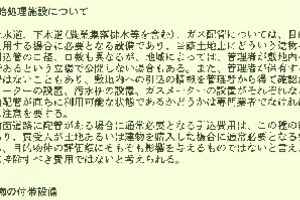 処理施設について
水道、下水道(農業集落排水等を含む)、ガス配管については、目
用する場合に必要となる設備であり、当該土地にどういう建物
引込管の口径、口数も異なるが、地域によっては、管理者が敷地内
であるという立場で公開しない場合もある。また、管理者が保有す
ではないこともあり、敷地内への引込の情報を管理者から得て確認
ーターの設置、汚水枡の設置、ガスメーターの設置がそれぞれな
配管が直ちに利用可能な状態であるかどうかは専門業者でなけれ
に注意を要する。
前面道路に配管がある場合に通常必要となる引込費用は、この種の
あり、買受人が土地あるいは建物を購入した場合に通常必要となる
、目的物件の評価額にそもそも影響を与えるものではないと言え、
控除すべき費用ではないと考えられる。
の付帯設備